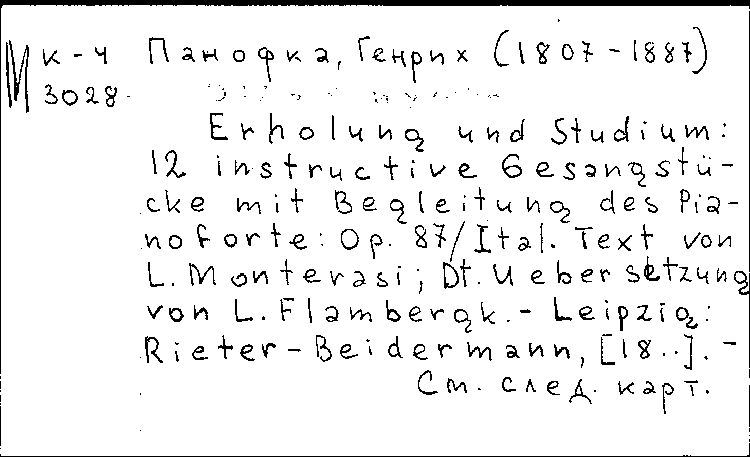 М к-ч Панофка, Генрих (1807-1887)
3028.
Erholung und Studium:
12 instructive Gesangstü-
cke mit Begleitung des Pia-
noforte: Op. 87/Ital. Text von
L. Monterasi; Dt. Uebersetzung
von L. Flambergk. - Leipzig:
Rieter-Beidermann, [18..]. -
См. след. карт.